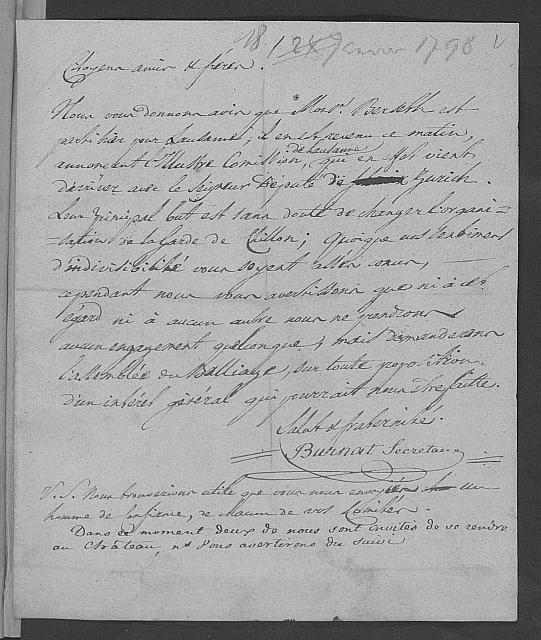 18 / 24 Janvier 1798
Citoyens amis & frères.
Nous vous donnons avis que Monsr. Berdeth est
parti hier pour Lausanne, il en est revenu ce matin,
annoncant l'Illustre Comission, de Lausanne, qui en effet vient
d'arriver avec le Seigneur Député de Zurich.
Leur Principal but est sans doute de changer l'organi=
=sation de la Garde de Chillon; Quoique vos sentimens
d'indivisibilité vous soyent assés connus,
cependant nous vous avertissons que ni à cet
égard ni à aucun autre nous ne prendrons
aucun engagement quelconque, mais demanderons
l'assemblée du Balliage, sur toute proposition
d'un intérêt général qui pourrait nous être faitte.
Salut & fraternité.
Burnat Secretaire
P. S. Nous trouverions utile que vous nous envoyiés un
homme de confiance, de chacun de vos Comités.
Dans ce moment deux de nous sont invités de se rendre
au Château, ns vous avertirons du suivi